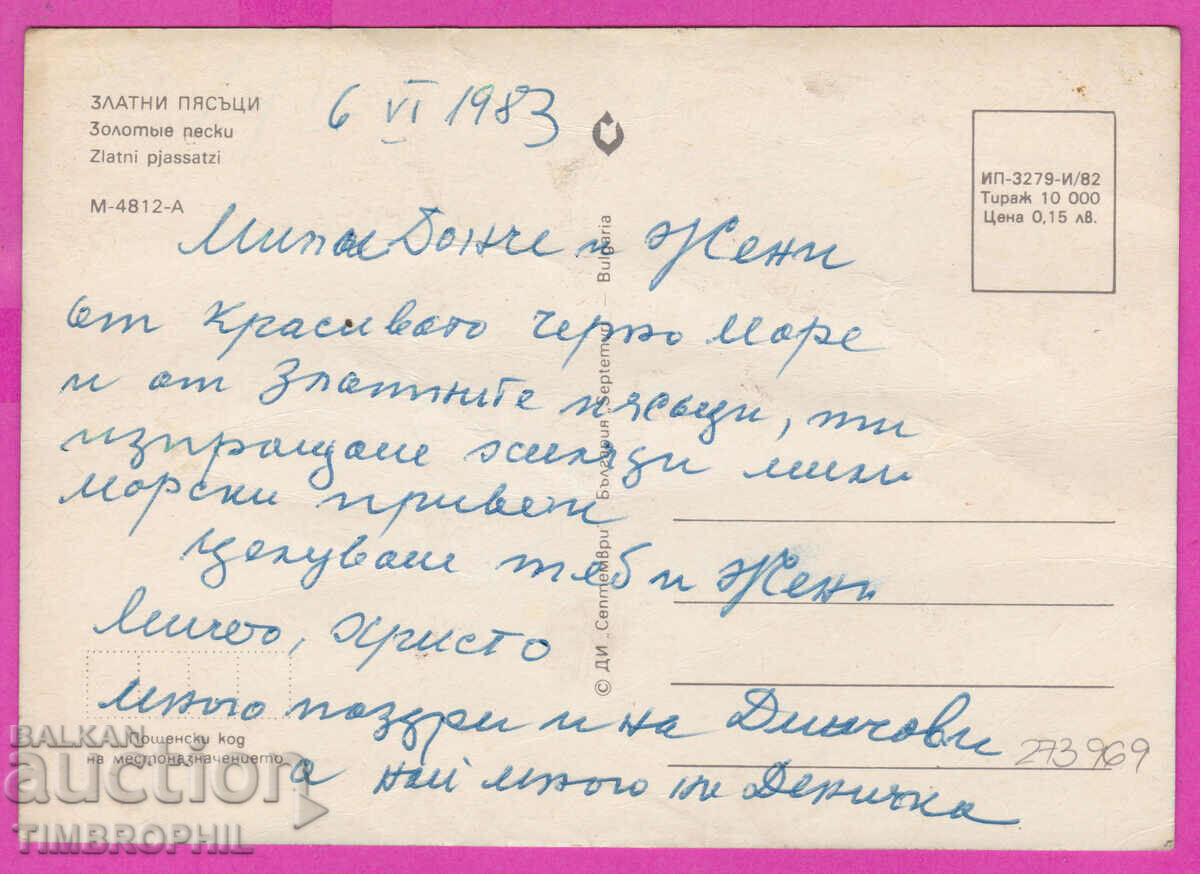 ЗЛАТНИ ПЯСЪЦИ
Золотые пески
Zlatni pjassatzi
М-4812-А
6 VI 1983
ИП-3279-И/82
Тираж 10 000
Цена 0,15 лв.
Мили Донче и Жени
от красивото Черно море
и от Златните пясъци, ти
изпращаме хиляди мили
морски привети
Целуваме теб и Жени
Минчето, Христо
много поздри и на Динчови
а най много на Деничка
© ДИ „Септември" България „Septemvri" – Bulgaria
Пощенски код
на местоназначението
273969
BALKAN
auction
TIMBROPHIL